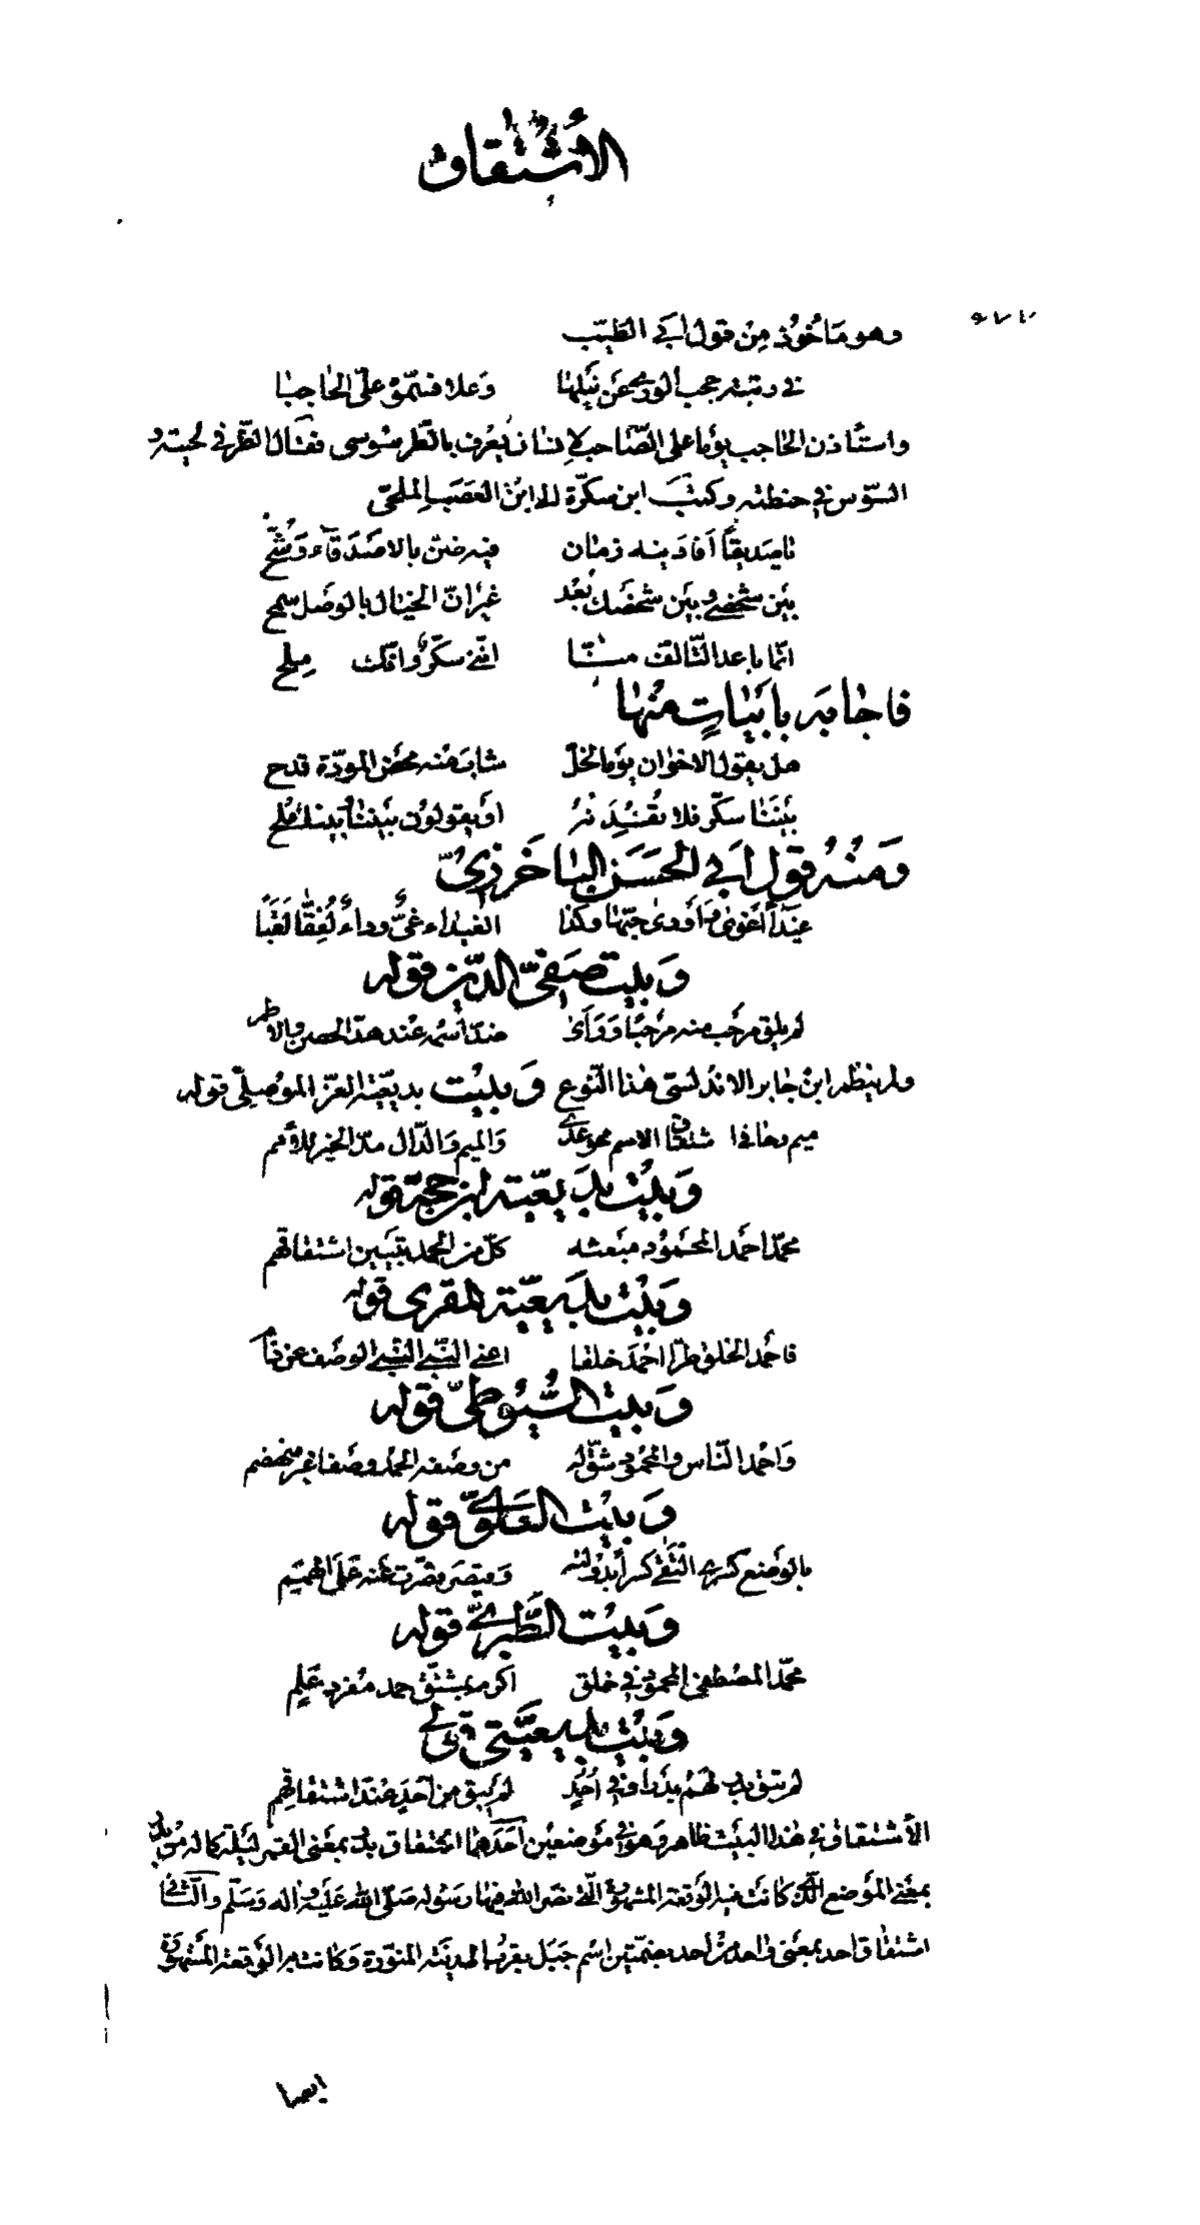 الأشتقاق
وهو مَأخُوذ مِن قول أبي الطيّب
في رتبته حجب الورى عن نيلها وعلا فسمّوه عليّ الحاجبا
واستأذن الحاجب يوما على الصّاحب لانسان يعرف بالطّرسوسي فقال الطّر في لحيته و
السّوس في حنطته وكتب ابن سكّرة الى ابن العصب الملحيّ
يا صديقًا أفادنيه زمان فيه ضنّ بالاصدقاء وشحّ
بين شخصي وبين شخصك بُعد غير انّ الخيال بالوصل سمح
انّما باعد التّالف منّا انّني سكّر وانّك مِلح
فاجابه بابيات منها
هل يقول الاخوان يوما لخلّ شاب منه محض المودّة قدح
بيننا سكّر فلا تفسدنه او يقولون بيننا بينك ملح
ومنه قول أبي الحسن الباخرزيّ
الغيداء غيّ وداء لُفّقا لقبا
وبيت صفيّ الدّين قوله
لم يلق مرحب منه مرحبًا ورأى ضدّ اسمه عند هدّ الحصن والاطم
ولم ينظم ابن جابر الاندلسي هذا النّوع وبيت بديعيّة العزّ الموصليّ قوله
ميم وحا في اشتقاق الاسم محو عدى والميم والدّال مدّ الخير للأمم
وبيت بديعيّة ابن حجّة قوله
محمّد احمد المحمود مبعثه كلّ من الحمد تبيين اشتقاقهم
وبيت بديعيّة المقري قوله
فاحمد الخلق طرّا احمد خلقا اعني النّبيّ الوصف عن
وبيت السّيوطيّ قوله
واحمد النّاس والمحمود شقّ له من وصفه الحمد وصفا غير منخضم
وبيت العلويّ قوله
بالوضع كسرى وقيصر قصّرت عنه على الهمم
وبيت الطّبريّ قوله
محمّد المصطفى المحمود في خلق اكرم بمشتقّ حمد مفرد علم
وبيت بديعيّتي قولي
لم تبق بدر لهم بدرا وفي أُحُد لم يبق من أحد عند اشتقاقهم
الأشتقاق في هذا البيت ظاهر وهو في موضعين أحدهما اشتقاق بدر بمعنى القمر ليلة كماله من بدر
بمعنى الموضع الّذي كانت فيه الوقعة المشهورة الّتي نصر الله فيها رسوله صلّى الله عليه واله وسلّم والثّاني
اشتقاق احد بمعنى واحد من أُحد بضمّتين اسم جبل بقرب المدينة المنوّرة وكانت به الوقعة المشهورة
ايضا